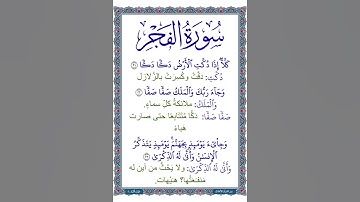 سُورَةُ الْفَجْرِ
كَلَّآ إِذَا دُكَّتِ ٱلْأَرْضُ دَكًّا دَكًّا ٢١
دُكَّتِ: دقَّتْ وكُسِرَتْ بالزَّلازلِ
وَجَآءَ رَبُّكَ وَٱلْمَلَكُ صَفًّا صَفًّا ٢٢
وَٱلْمَلَكُ: ملائكةُ كلِّ سماءٍ.
صَفًّا صَفًّا: دكًّا مُتَتابعًا حتى صارت
هَباءً
وَجِا۟ىٓءَ يَوْمَئِذٍۭ بِجَهَنَّمَ ۚ يَوْمَئِذٍ يَتَذَكَّرُ
ٱلْإِنسَٰنُ وَأَنَّىٰ لَهُ ٱلذِّكْرَىٰ ٢٣
وَأَنَّىٰ لَهُ ٱلذِّكْرَىٰ: ولا يَحُثُّ من أين له
مَنفعتُها؟ هَيْهات.